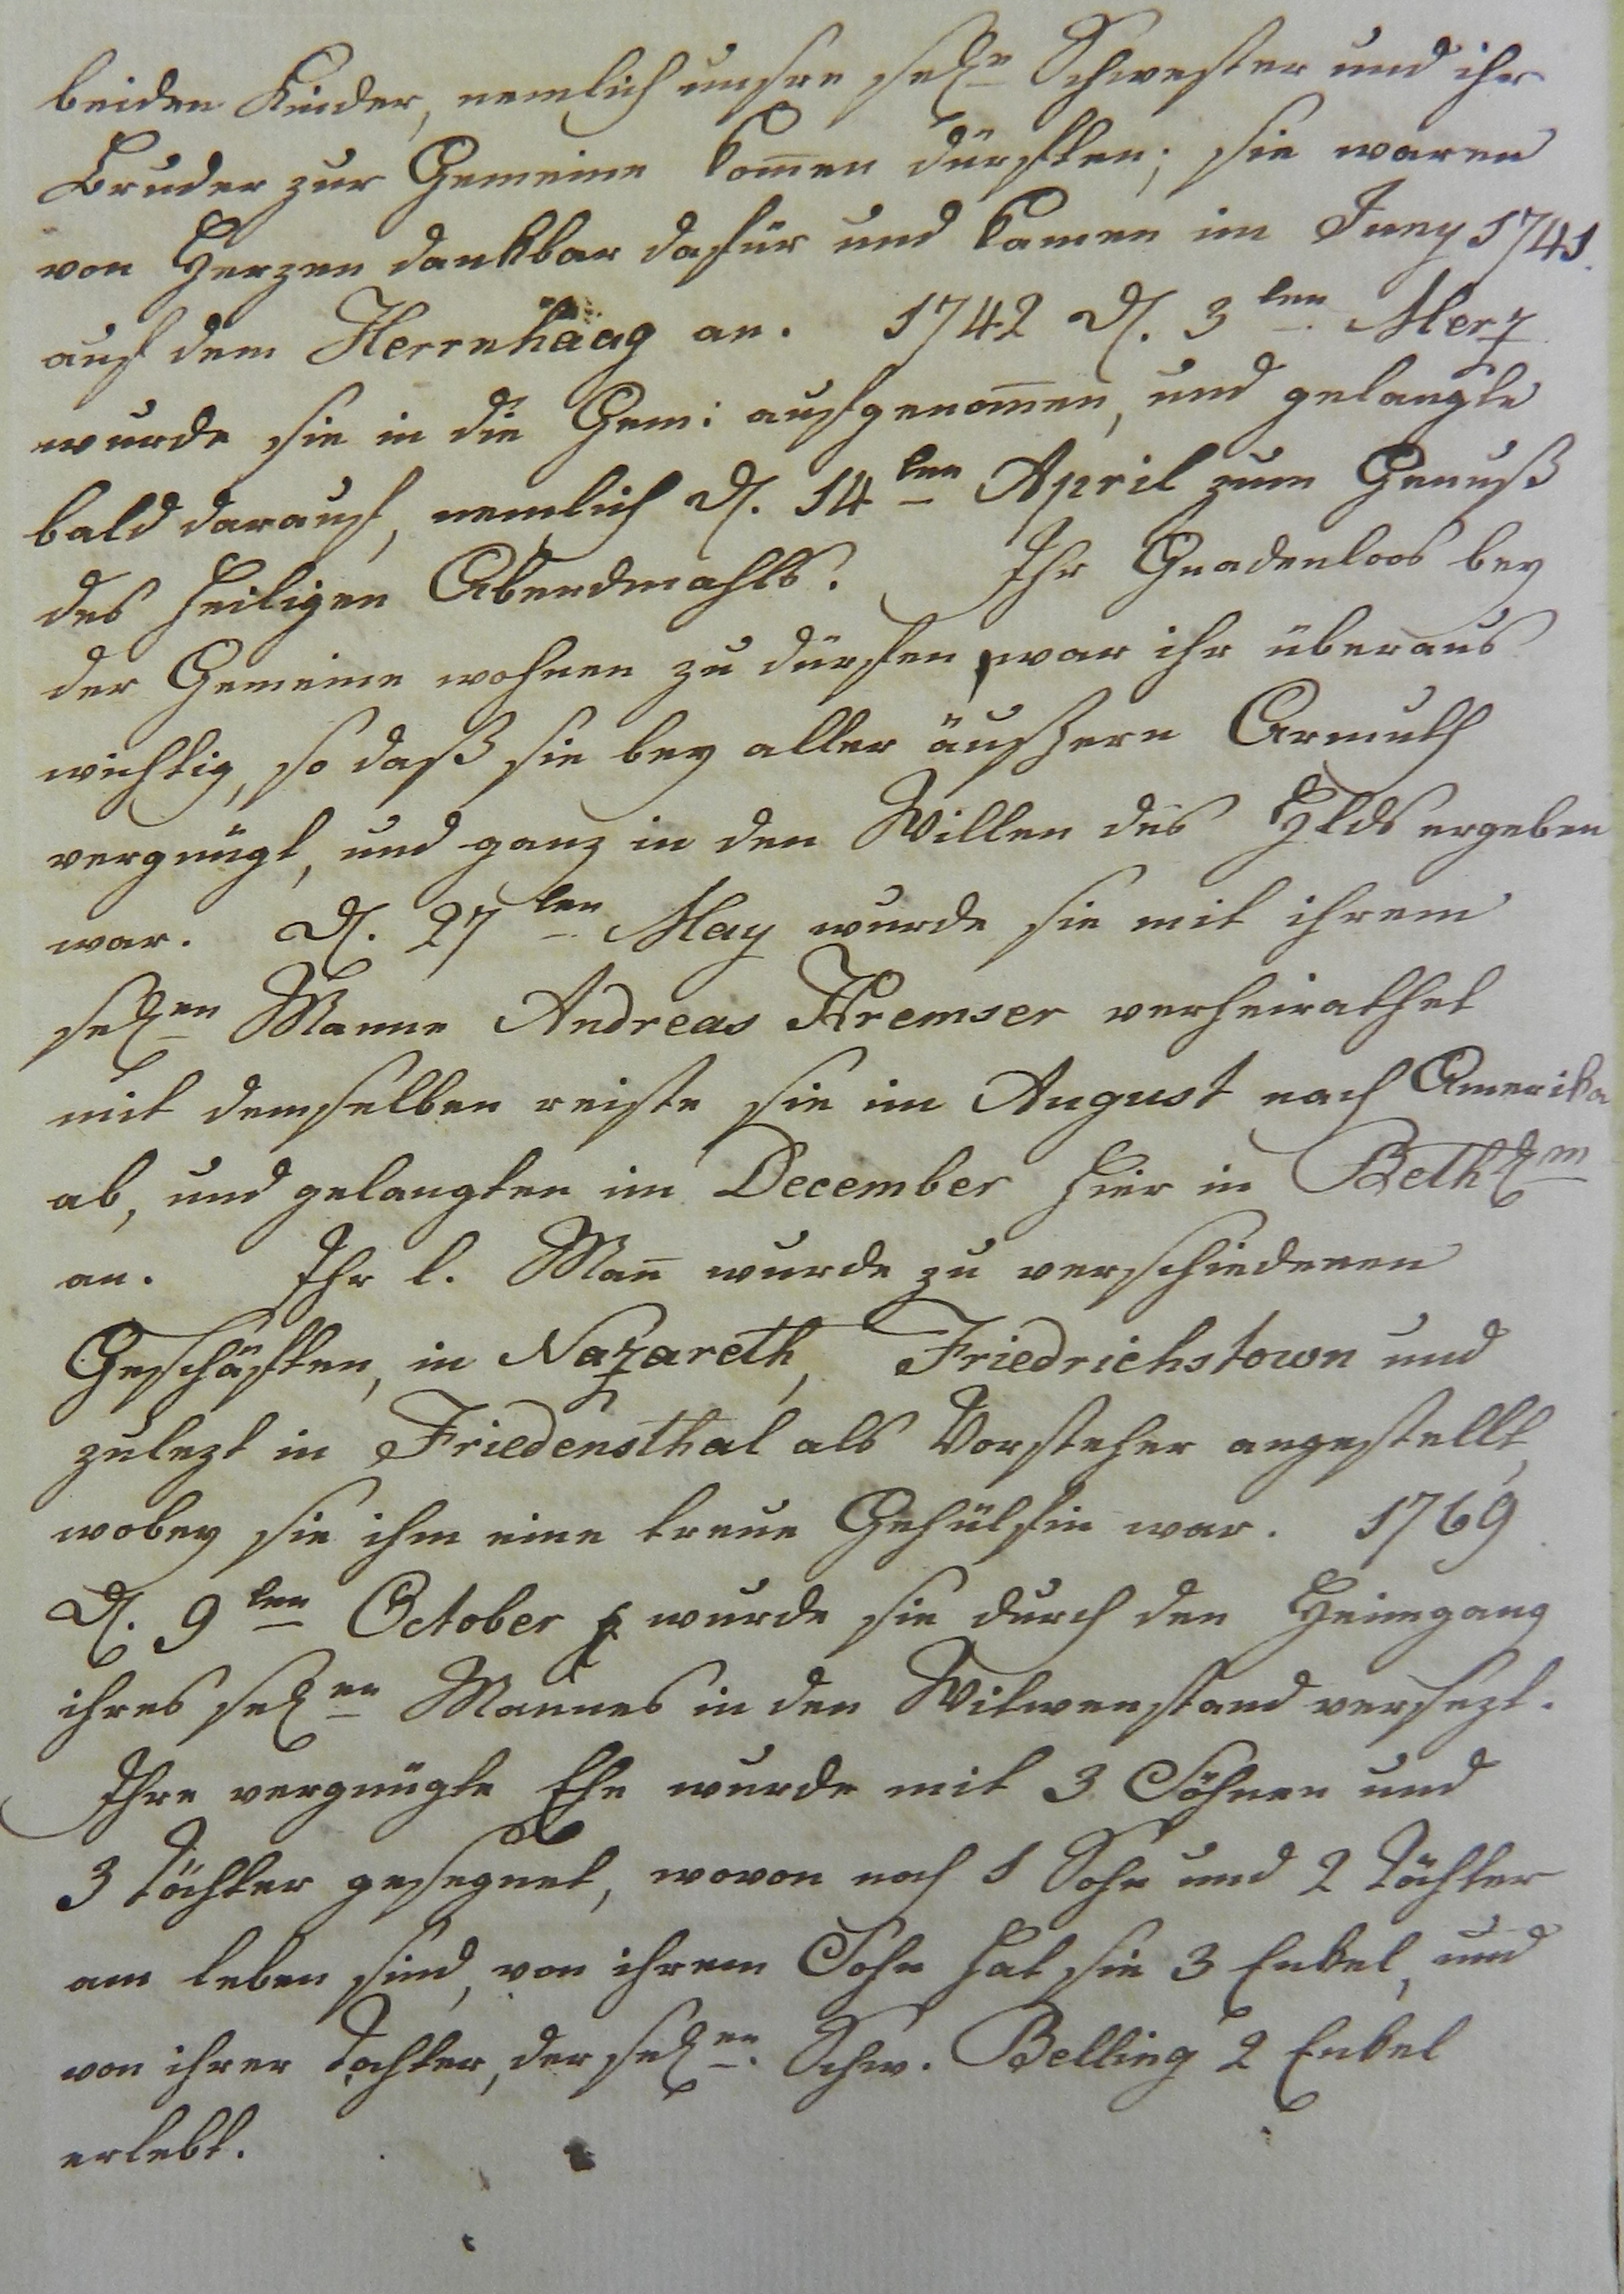 beiden Kinder, nemlich unsre sel<sup>e</sup> Schwester und ihr
Bruder zur Gemeine kom̅en dürften; sie waren
von Herzen dankbar dafür und kamen im Juny 1741.
auf dem Herrnhaag an. 1742 d. 3<sup>ten</sup> Merz
wurde sie in die Gem: aufgenom̅en, und gelangte
bald darauf, nemlich d. 14<sup>ten</sup> April zum Genuß
des heiligen Abendmahls. Ihr Gnadenloos bey
der Gemeine wohnen zu dürfen, war ihr überaus
wichtig, so daß sie bey aller äußern Armuth
vergnügt, und ganz in den Willen des Hlds ergeben
war. d. 27<sup>ten</sup> May wurde sie mit ihrem
sel<sup>en</sup> Manne Andreas Kremser verheirathet
mit demselben reiste sie im August nach Amerika
ab, und gelangten im December hier in Bethl<sup>m</sup>
an. Ihr l. Man̅ wurde zu verschiedenen
Geschäften, in Nazareth, Friedrichstown und
zulezt in Friedensthal als Vorsteher angestellt,
wobey sie ihm eine treue Gehülfin war. 1769
d. 9<sup>ten</sup> October wurde sie durch den Heimgang
ihres sel<sup>en</sup> Mannes in den Witwenstand versezt.
Ihre vergnügte Ehe wurde mit 3 Söhnen und
3 Töchter gesegnet, wovon noch 1 Sohn und 2 Töchter
am leben sind, von ihrem Sohn hat sie 3 Enkel, und
von ihrer Tochter, der sel<sup>en</sup>. Schw. Belling 2 Enkel
erlebt.